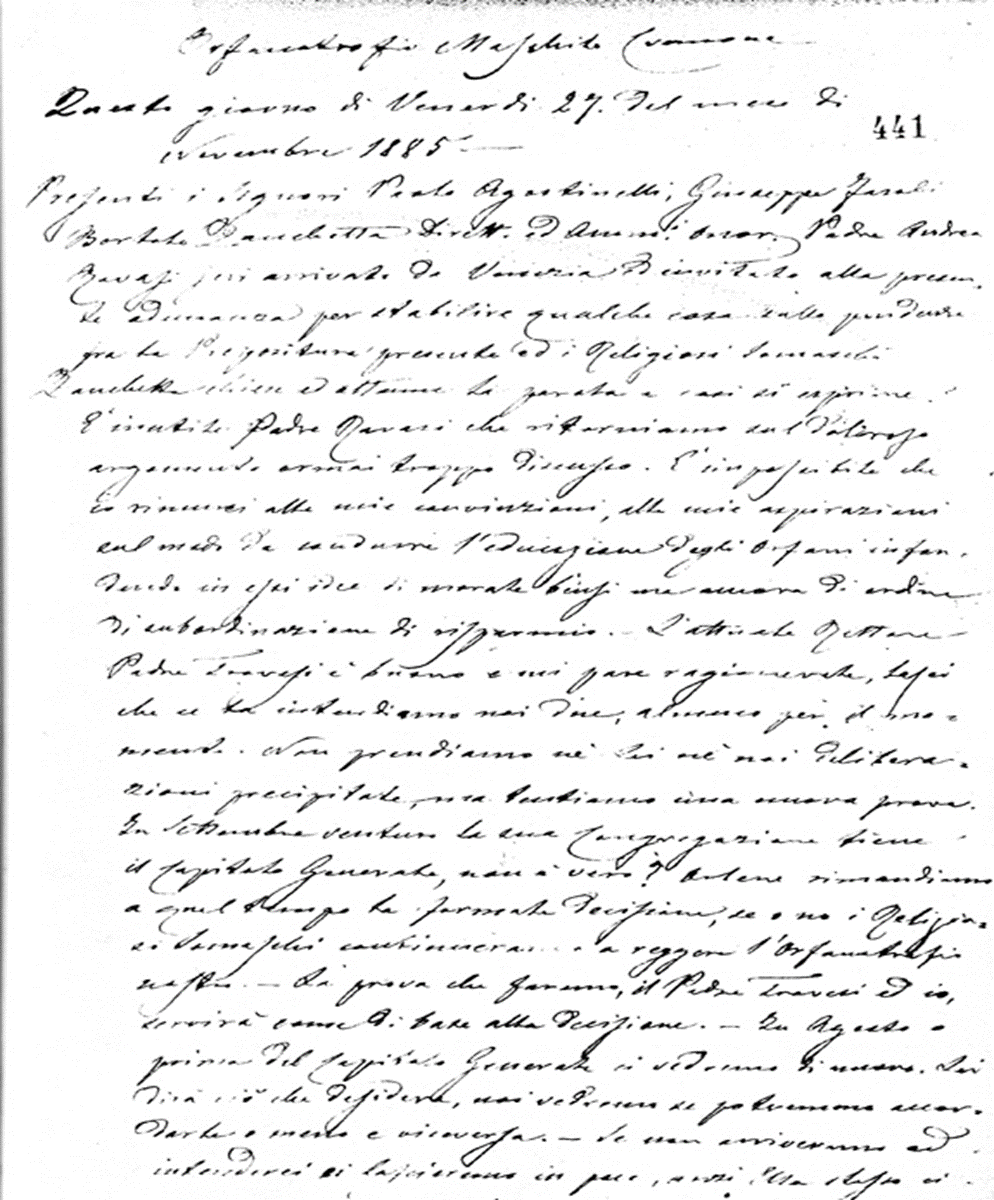 Orfanotrofio Maschile Cremona
Questo giorno di Venerdi 27. del mese di
441
Novembre 1885
Presenti i Signori Paolo Agostinelli, Giuseppe
Bortolo Zanchetta Dirett. ed Amm. onor. Padre Andrea
Ravasi jeri arrivato da Venezia ed invitato alla presen-
te adunanza per stabilire qualche cosa sulle pendenze
fra la Prepositura presente ed i Religiosi Somaschi
Zanchetta chiese ed ottenne la parola e cosi si esprime.
E' inutile Padre Ravasi che ritorniamo sul doloroso
argomento ormai troppo discusso. E' impossibile che
io rinunci alle mie convinzioni, alle mie aspirazioni
sul modo da condurre l'educazione degli Orfani infon-
dendo in essi idee di morale bensi ma ancora di ordine
di subordinazione di risparmio. - L'attuale Rettore
Padre Travesi è buono e mi pare ragionevole, lasci
che ce la intendiamo noi due, almeno per il mo-
mento. Non prendiamo nè Lei nè noi delibera-
zioni precipitate, ma tentiamo una nuova prova.
In Settembre venturo la sua Congregazione tiene
il Capitolo Generale, non è vero? Orbene rimandiamo
a quel tempo la formale decisione, se o no i Religio-
si Somaschi continueranno a reggere l'Orfanotrofio
nostro. - La prova che faremo, il Padre Travesi ed io,
servirà come di base alla decisione. - In Agosto o
prima del Capitolo Generale ci vedremo di nuovo. Lei
dirà ciò che desidera, noi vedremo se potremmo accor-
darle o meno e viceversa. - Se non arriveremo ad
intenderci ci lascieremo in pace, anzi Ella stessa ci